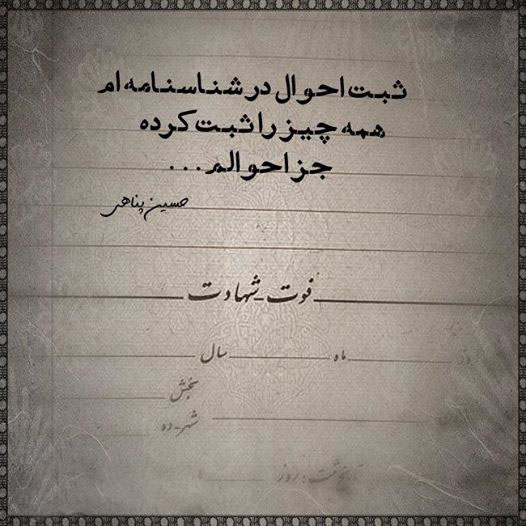 ثبت احوال در شناسنامه ام
همه چیز را ثبت کرده
جز احوالم ...
حسین پناهی
فوت - شهادت
ماه سال
بخش
شهر - ده
تاریخ ثبت: روز